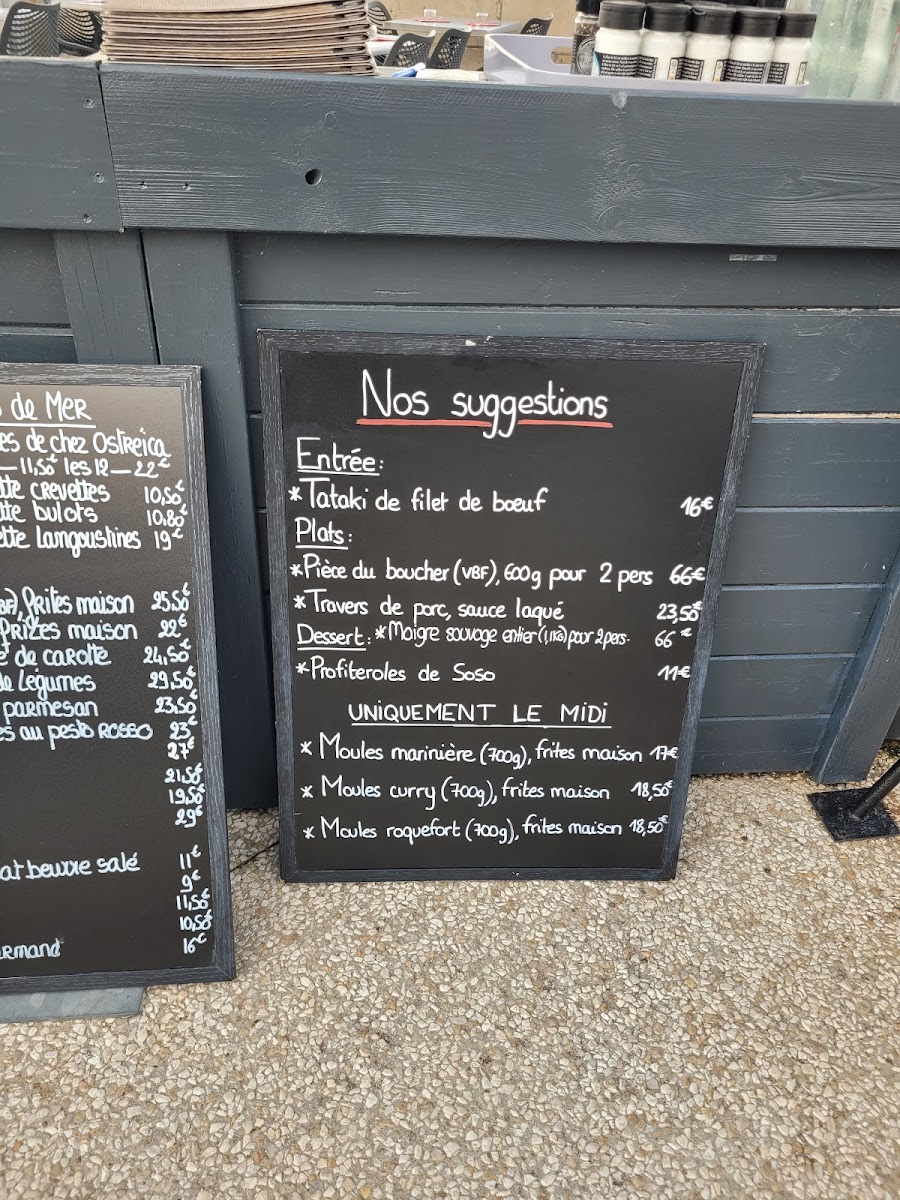 de Mer
es de chez Ostreica
— 11,50 les 12 — 22€
tte crevettes 10,50€
tte bulots 10,80€
ette langoustines 19€
frites maison 25,50€
frites maison 22€
de carotte 24,50€
de légumes 29,50€
parmesan 23,50€
es au pesto rosso 23€
27€
21,50€
19,50€
29€
at beurre salé 11€
9€
11,50€
10,50€
rmand 16€
Nos suggestions
Entrée:
* Tataki de filet de bœuf 16€
Plats:
* Pièce du boucher (VBF), 600g pour 2 pers 66€
* Travers de porc, sauce laqué 23,50€
Dessert: * Maigre sauvage entier (1,1KG) pour 2 pers. 66€
* Profiteroles de Soso 11€
UNIQUEMENT LE MIDI
* Moules marinière (700g), frites maison 17€
* Moules curry (700g), frites maison 18,50€
* Moules roquefort (700g), frites maison 18,50€